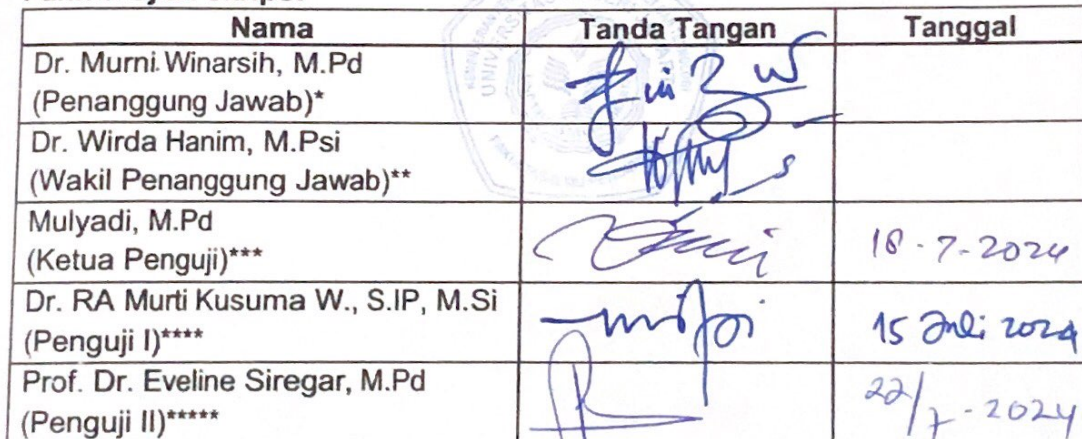 Nama Tanda Tangan Tanggal
Dr. Murni Winarsih, M.Pd
(Penanggung Jawab)*
Dr. Wirda Hanim, M.Psi
(Wakil Penanggung Jawab)**
Mulyadi, M.Pd
(Ketua Penguji)*** 18-7-2024
Dr. RA Murti Kusuma W., S.IP, M.Si
(Penguji I)**** 15 Juli 2024
Prof. Dr. Eveline Siregar, M.Pd
(Penguji II)***** 22/7-2024